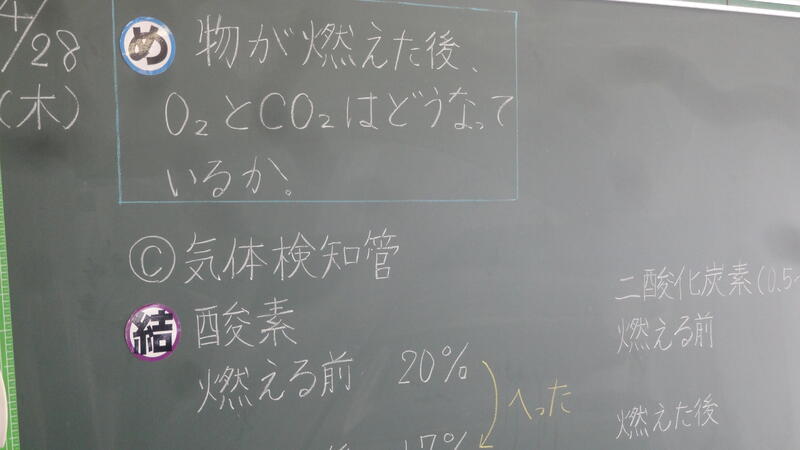 4/28
(木)
め 物が燃えた後、
O₂とCO₂はどうなって
いるか。
Ⓒ気体検知管
結 酸素
燃える前 20%
へった
後 17%
二酸化炭素(0.5~
燃える前
燃えた後